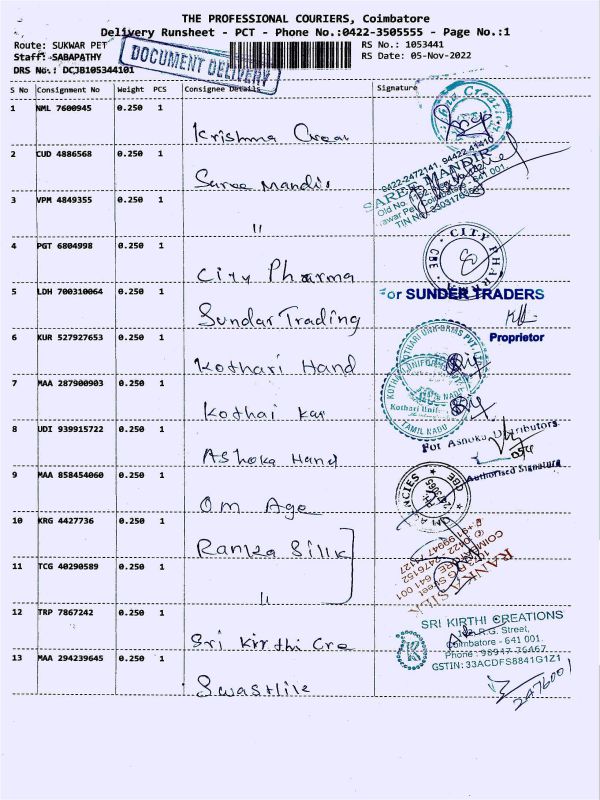 THE PROFESSIONAL COURIERS, Coimbatore
Delivery Runsheet - PCT - Phone No.:0422-3505555 - Page No.:1
Route: SUKWAR PET
RS No.: 1053441
Staff: SABAPATHY
RS Date: 05-Nov-2022
DRS No.: DCJB105344101
DOCUMENT DELIVERY
S No Consignment No Weight PCS Consignee Details Signature
1 NML 7600945 0.250 1
Krishna Creai
2 CUD 4886568 0.250 1
Saree Mandir
0422-2472141, 94422-41410
SAREE MANDIR
3 VPM 4849355 0.250 1
"
4 PGT 6804998 0.250 1
City Pharma
CITY PHARMA
CBE
5 LDH 700310064 0.250 1
Sundar Trading
For SUNDER TRADERS
Proprietor
6 KUR 527927653 0.250 1
Kothari Hand
KOTHARI UNIFORMS PVT LTD
7 MAA 287900903 0.250 1
Kothai Kar
Kothari Unif
TAMIL NADU
8 UDI 939915722 0.250 1
Ashoka Hand
For Ashoka Distributors
Authorised Signature
9 MAA 858454060 0.250 1
Om Age
10 KRG 4427736 0.250 1
Ranka Silk
RANKA SILK
11 TCG 40290589 0.250 1
"
12 TRP 7867242 0.250 1
Sri Kirthi Cre
SRI KIRTHI CREATIONS
R.G. Street,
Coimbatore - 641 001.
Phone: 98947 76467
GSTIN: 33ACDFS8841G1Z1
13 MAA 294239645 0.250 1
Swastlik
2476001